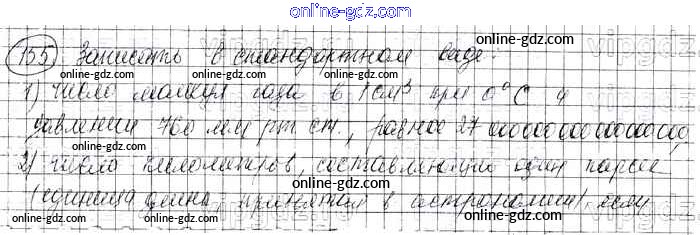 online-gdz.com
155 Записать в стандартном виде:
online-gdz.com online-gdz.com
1) число молекул газа в 1 см³ при 0°C и
online-gdz.com
давлении 760 мм рт. ст., равное 27
online-gdz.com online-gdz.com
2) число километров, составляющих один парсек
online-gdz.com
(единица длины, принятая в астрономии) если
online-gdz.com online-gdz.com